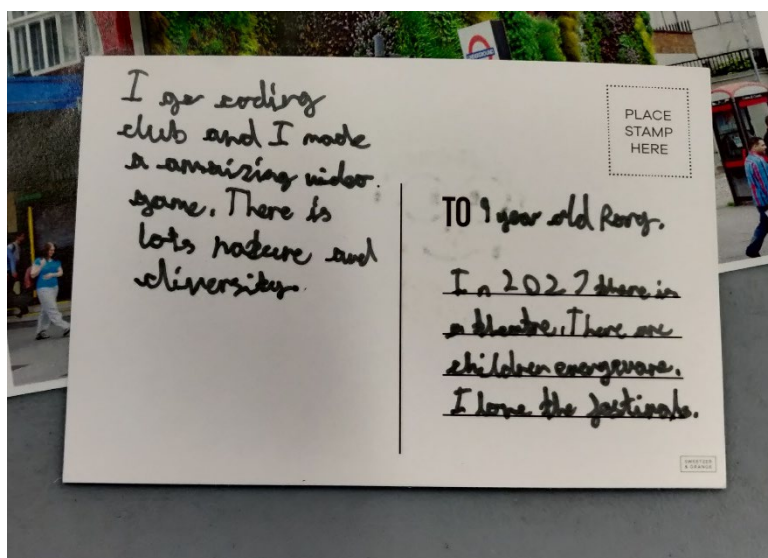 I go coding
club and I made
a amaizing video
game. There is
lots nature and
diversity.
PLACE
STAMP
HERE
TO 9 year old Rory.
In 2027 there is
a theatre. There are
children
I love the festivals.
SWEETZER
& ORANGE